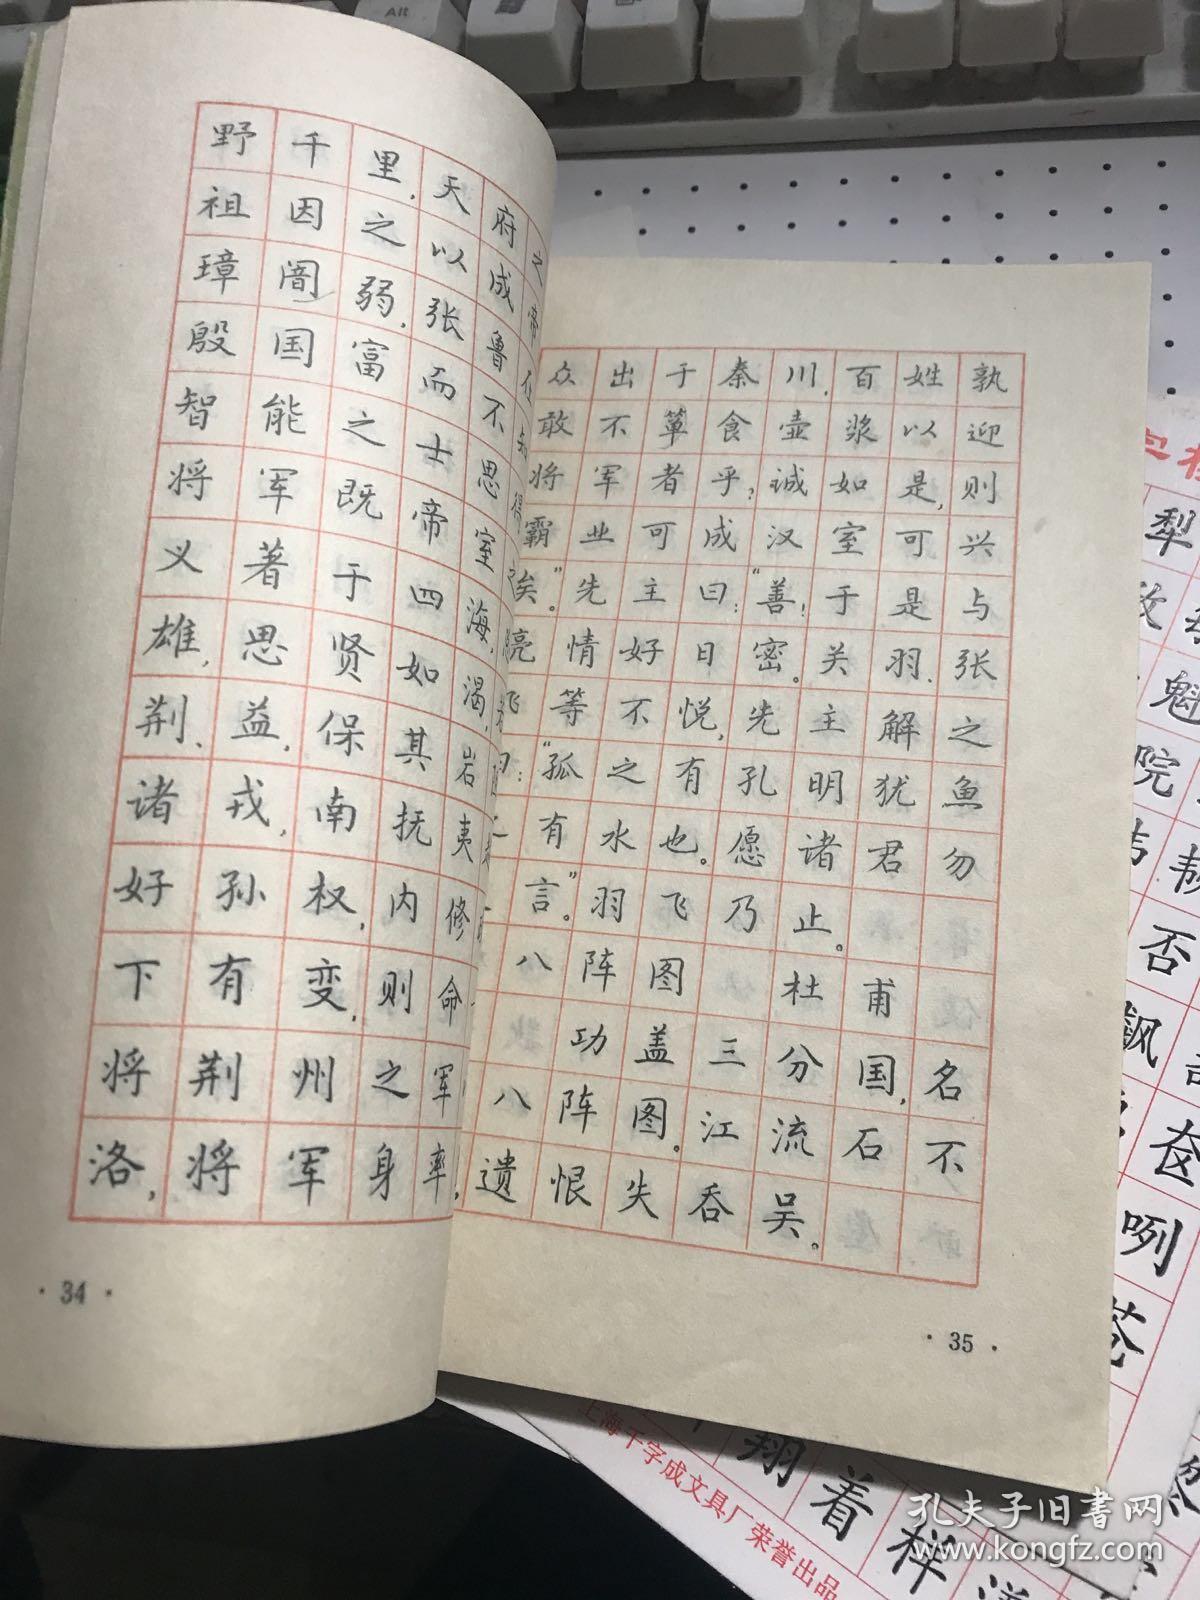 野千里,天府之
祖因之以成帝
璋闇弱,张鲁在
殷国富而不知
智能之士思得
将军既帝室
义著于四海,
雄,思贤如渴,
荆、益,保其岩
诸戎,南抚夷
好孙权,内修
下有变,则命
将荆州之军
洛,将军身率
·34·
众出于秦川,百姓孰
敢不箪食壶浆以迎
将军者乎?诚如是,则
霸业可成汉室可兴
矣。”先主曰:“善!于是与
亮情好日密。关羽、张
飞等不悦,先主解之
曰:“孤之有孔明犹鱼
有水也。愿诸君勿
言。”羽飞乃止。
八阵图 杜甫
功盖三分国,名
八阵图。江流石不
遗恨失吞吴。
·35·
犁
魁
院
否
飒
咧
苍
翔着样
上海千字成文具厂荣誉出品
孔夫子旧书网
www.kongfz.com
Alt